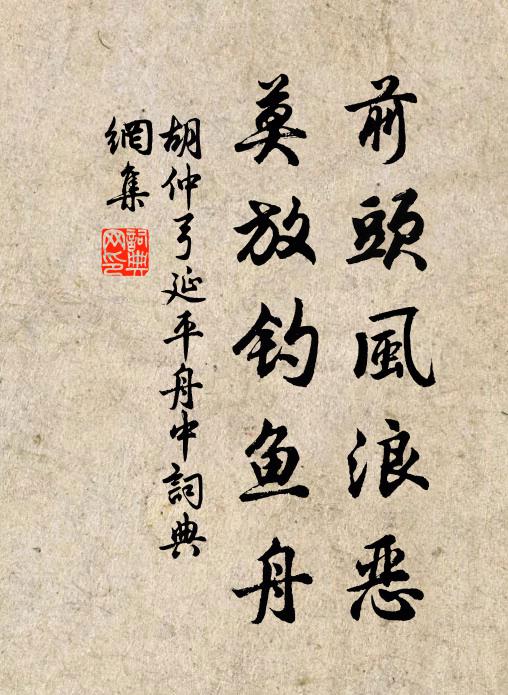 前頭風浪惡
莫放钓鱼舟
胡仲弓延平舟中詞典
網集
詞典网印